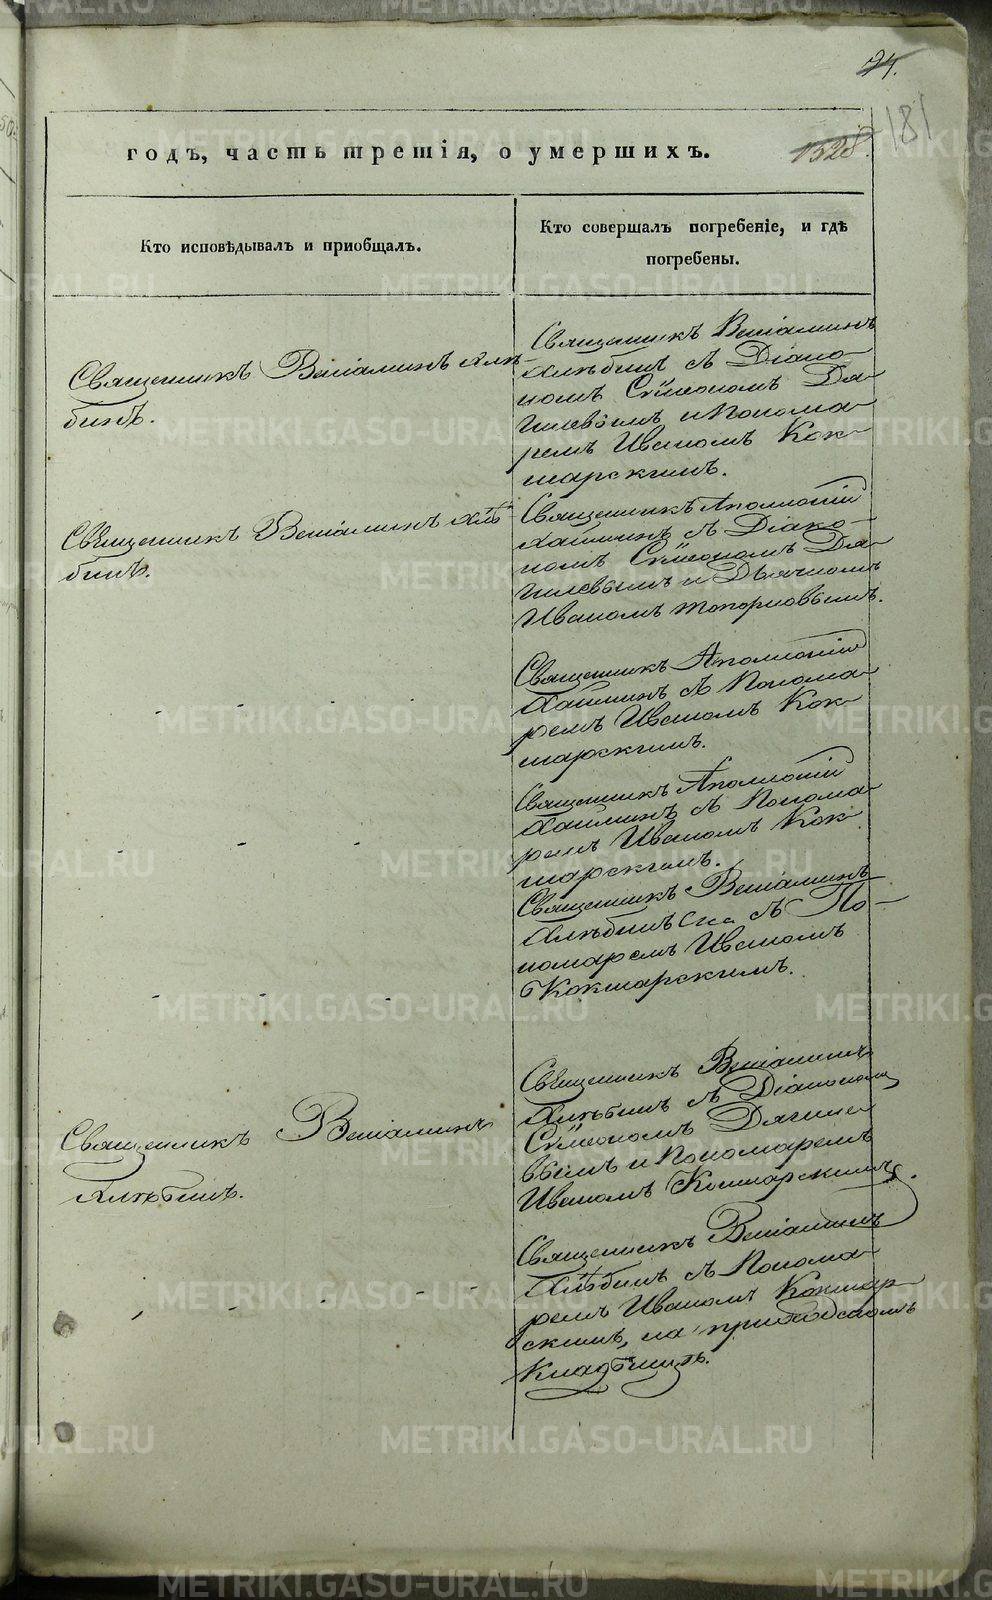 24.
181
годъ, часть третія, о умершихъ.
1528.
Кто исповѣдывалъ и приобщалъ.
Кто совершалъ погребеніе, и гдѣ
погребены.
Священникъ Веніаминъ Алѣ-
бинъ.
Священникъ Веніаминъ
Алѣбинъ съ Діако-
номъ Сѵмеономъ Дя-
гилевымъ и Понома-
ремъ Иваномъ Кок-
шарскимъ.
Священникъ Веніаминъ Алѣ-
бинъ.
Священникъ Аполлоній
съ Діако-
номъ Сѵмеономъ Дя-
гилевымъ и Дьячкомъ
Иваномъ Топорковымъ.
Священникъ Аполлоній
съ Понома-
ремъ Иваномъ Кок-
шарскимъ.
Священникъ Аполлоній
съ Понома-
ремъ Иваномъ Кок-
шарскимъ.
Священникъ Веніаминъ
Алѣбинъ съ По-
номаремъ Иваномъ
Кокшарскимъ.
Священникъ Веніаминъ
Алѣбинъ.
Священникъ Веніаминъ
Алѣбинъ съ Діакономъ
Сѵмеономъ Дягиле-
вымъ и Пономаремъ
Иваномъ Кокшарскимъ.
Священникъ Веніаминъ
Алѣбинъ съ Понома-
ремъ Иваномъ Кокшар-
скимъ, на приходскомъ
Кладбищѣ.
METRIKI.GASO-URAL.RU